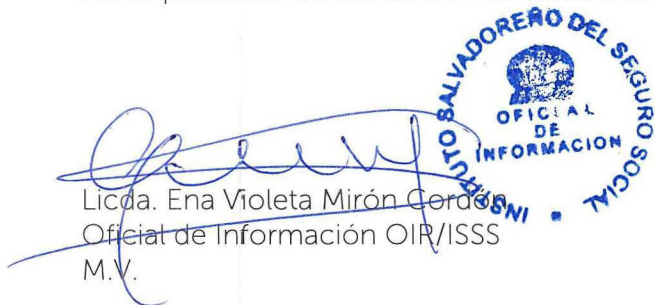 INSTITUTO SALVADOREÑO DEL SEGURO SOCIAL
OFICIAL
DE
INFORMACION
Licda. Ena Violeta Mirón Cordón
Oficial de Información OIR/ISSS
M.V.